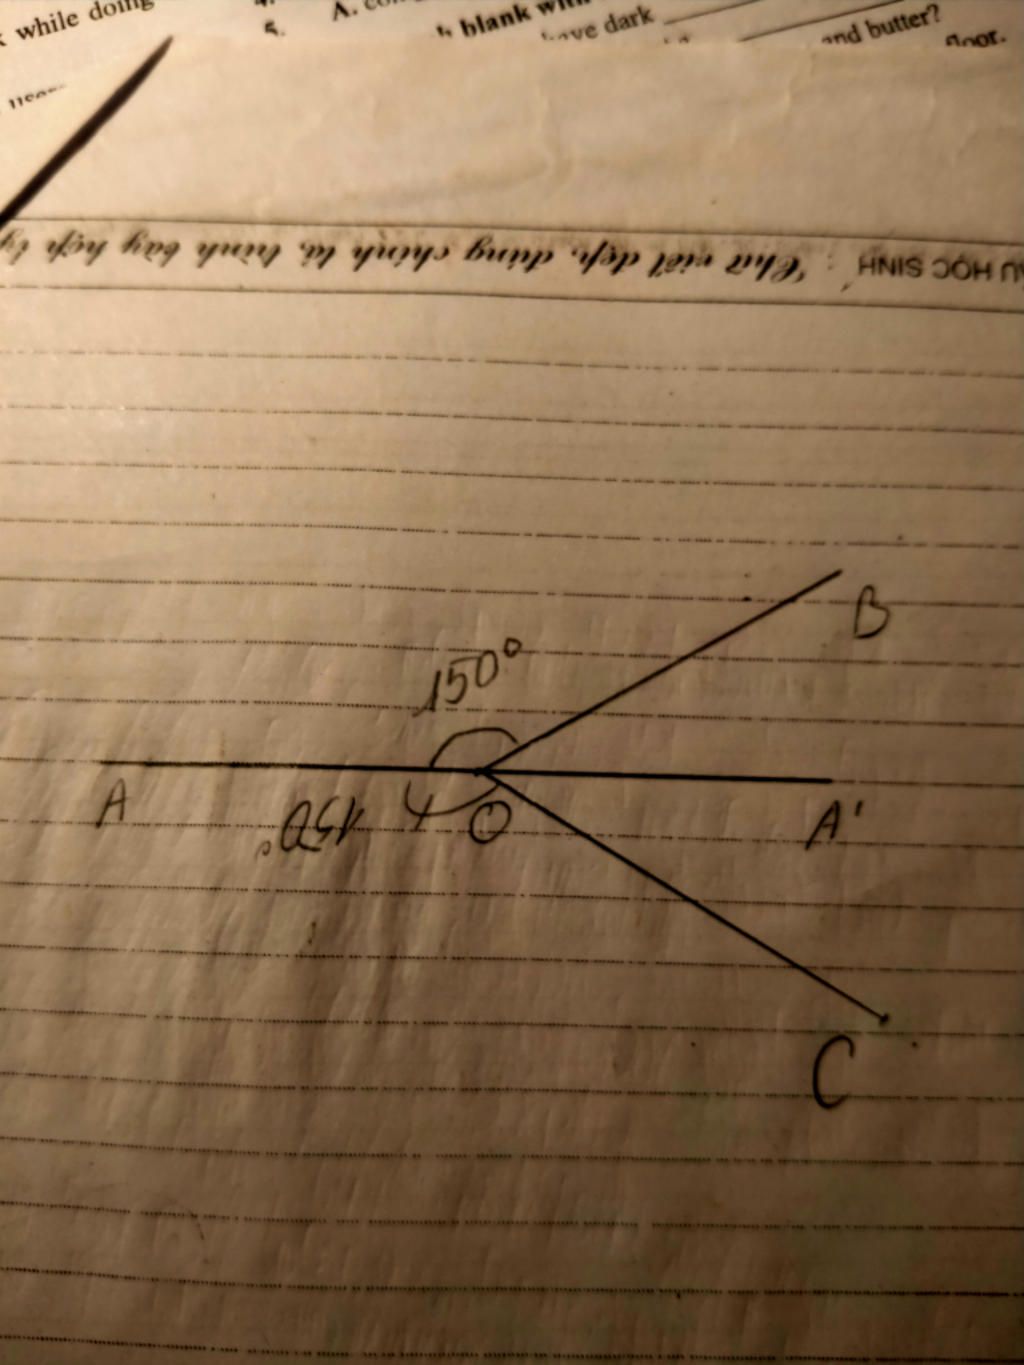 while doing
5.
A.
blank
have dark
and butter?
floor.
HỌC SINH : Chữ viết đẹp, đúng chính tả, trình bày hợp lý
B
150°
A
150°
O
A'
C